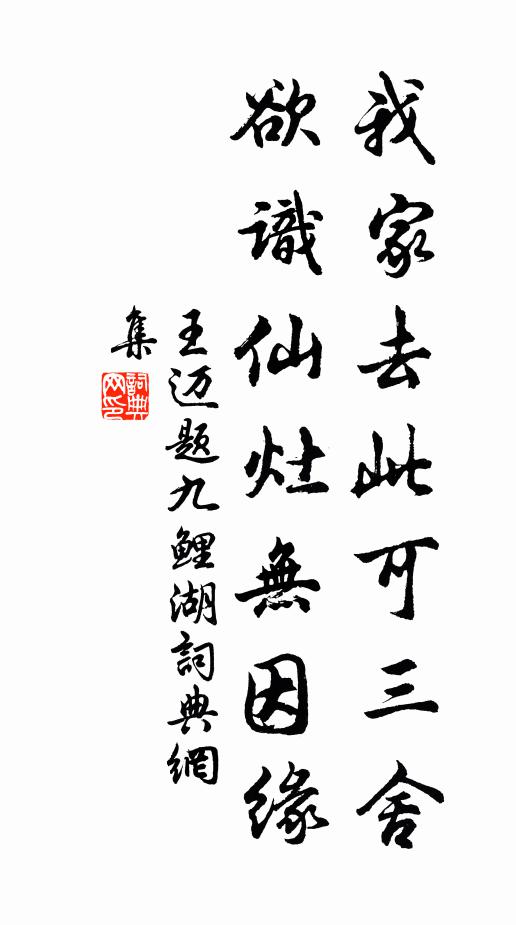 我家去此可三舍
欲識仙灶無因緣
王迈题九鲤湖詞典網
集
詞典
网印